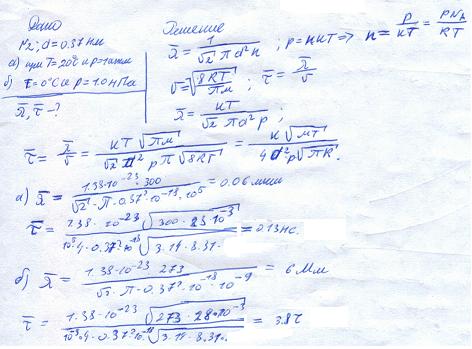 Дано
N₂; d = 0.37 нм
а) при T = 20°C и p = 1 атм
б) T = 0°C и p = 1.0 нПа
λ̄, τ̄ - ?
Решение
λ̄ = 1/(√2 π d² n) ; p = nkT => n = p/(kT) = pN_A/(RT)
v̄ = √(8RT/(πм)) ; τ̄ = λ̄/v̄
λ̄ = кT/(√2 π d² p) ;
τ̄ = λ̄/v̄ = кT√(πм)/(√2 d² p π √(8RT)) = к√(мT)/(4d² p√(πR)).
а) λ̄ = 1.38·10⁻²³·300/(√2·π·0.37²·10⁻¹⁸·10⁵) = 0.06 мкм
τ̄ = 1.38·10⁻²³√(300·28·10⁻³)/(10⁵·4·0.37²·10⁻¹⁸√(3.14·8.31)) = 0.13 нс.
б) λ̄ = 1.38·10⁻²³ 273/(√2·π·0.37²·10⁻¹⁸·10⁻⁹) = 6 Мм
τ̄ = 1.38·10⁻²³√(273·28·10⁻³)/(√(3.14·8.31)) = 3.8